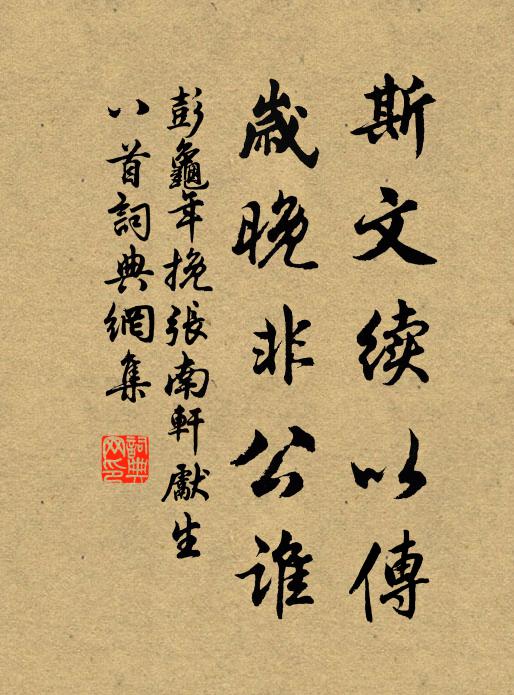 斯文续以傳
歲晚非公誰
彭龜年挽張南軒獻生
八首詞典網集
詞典网印